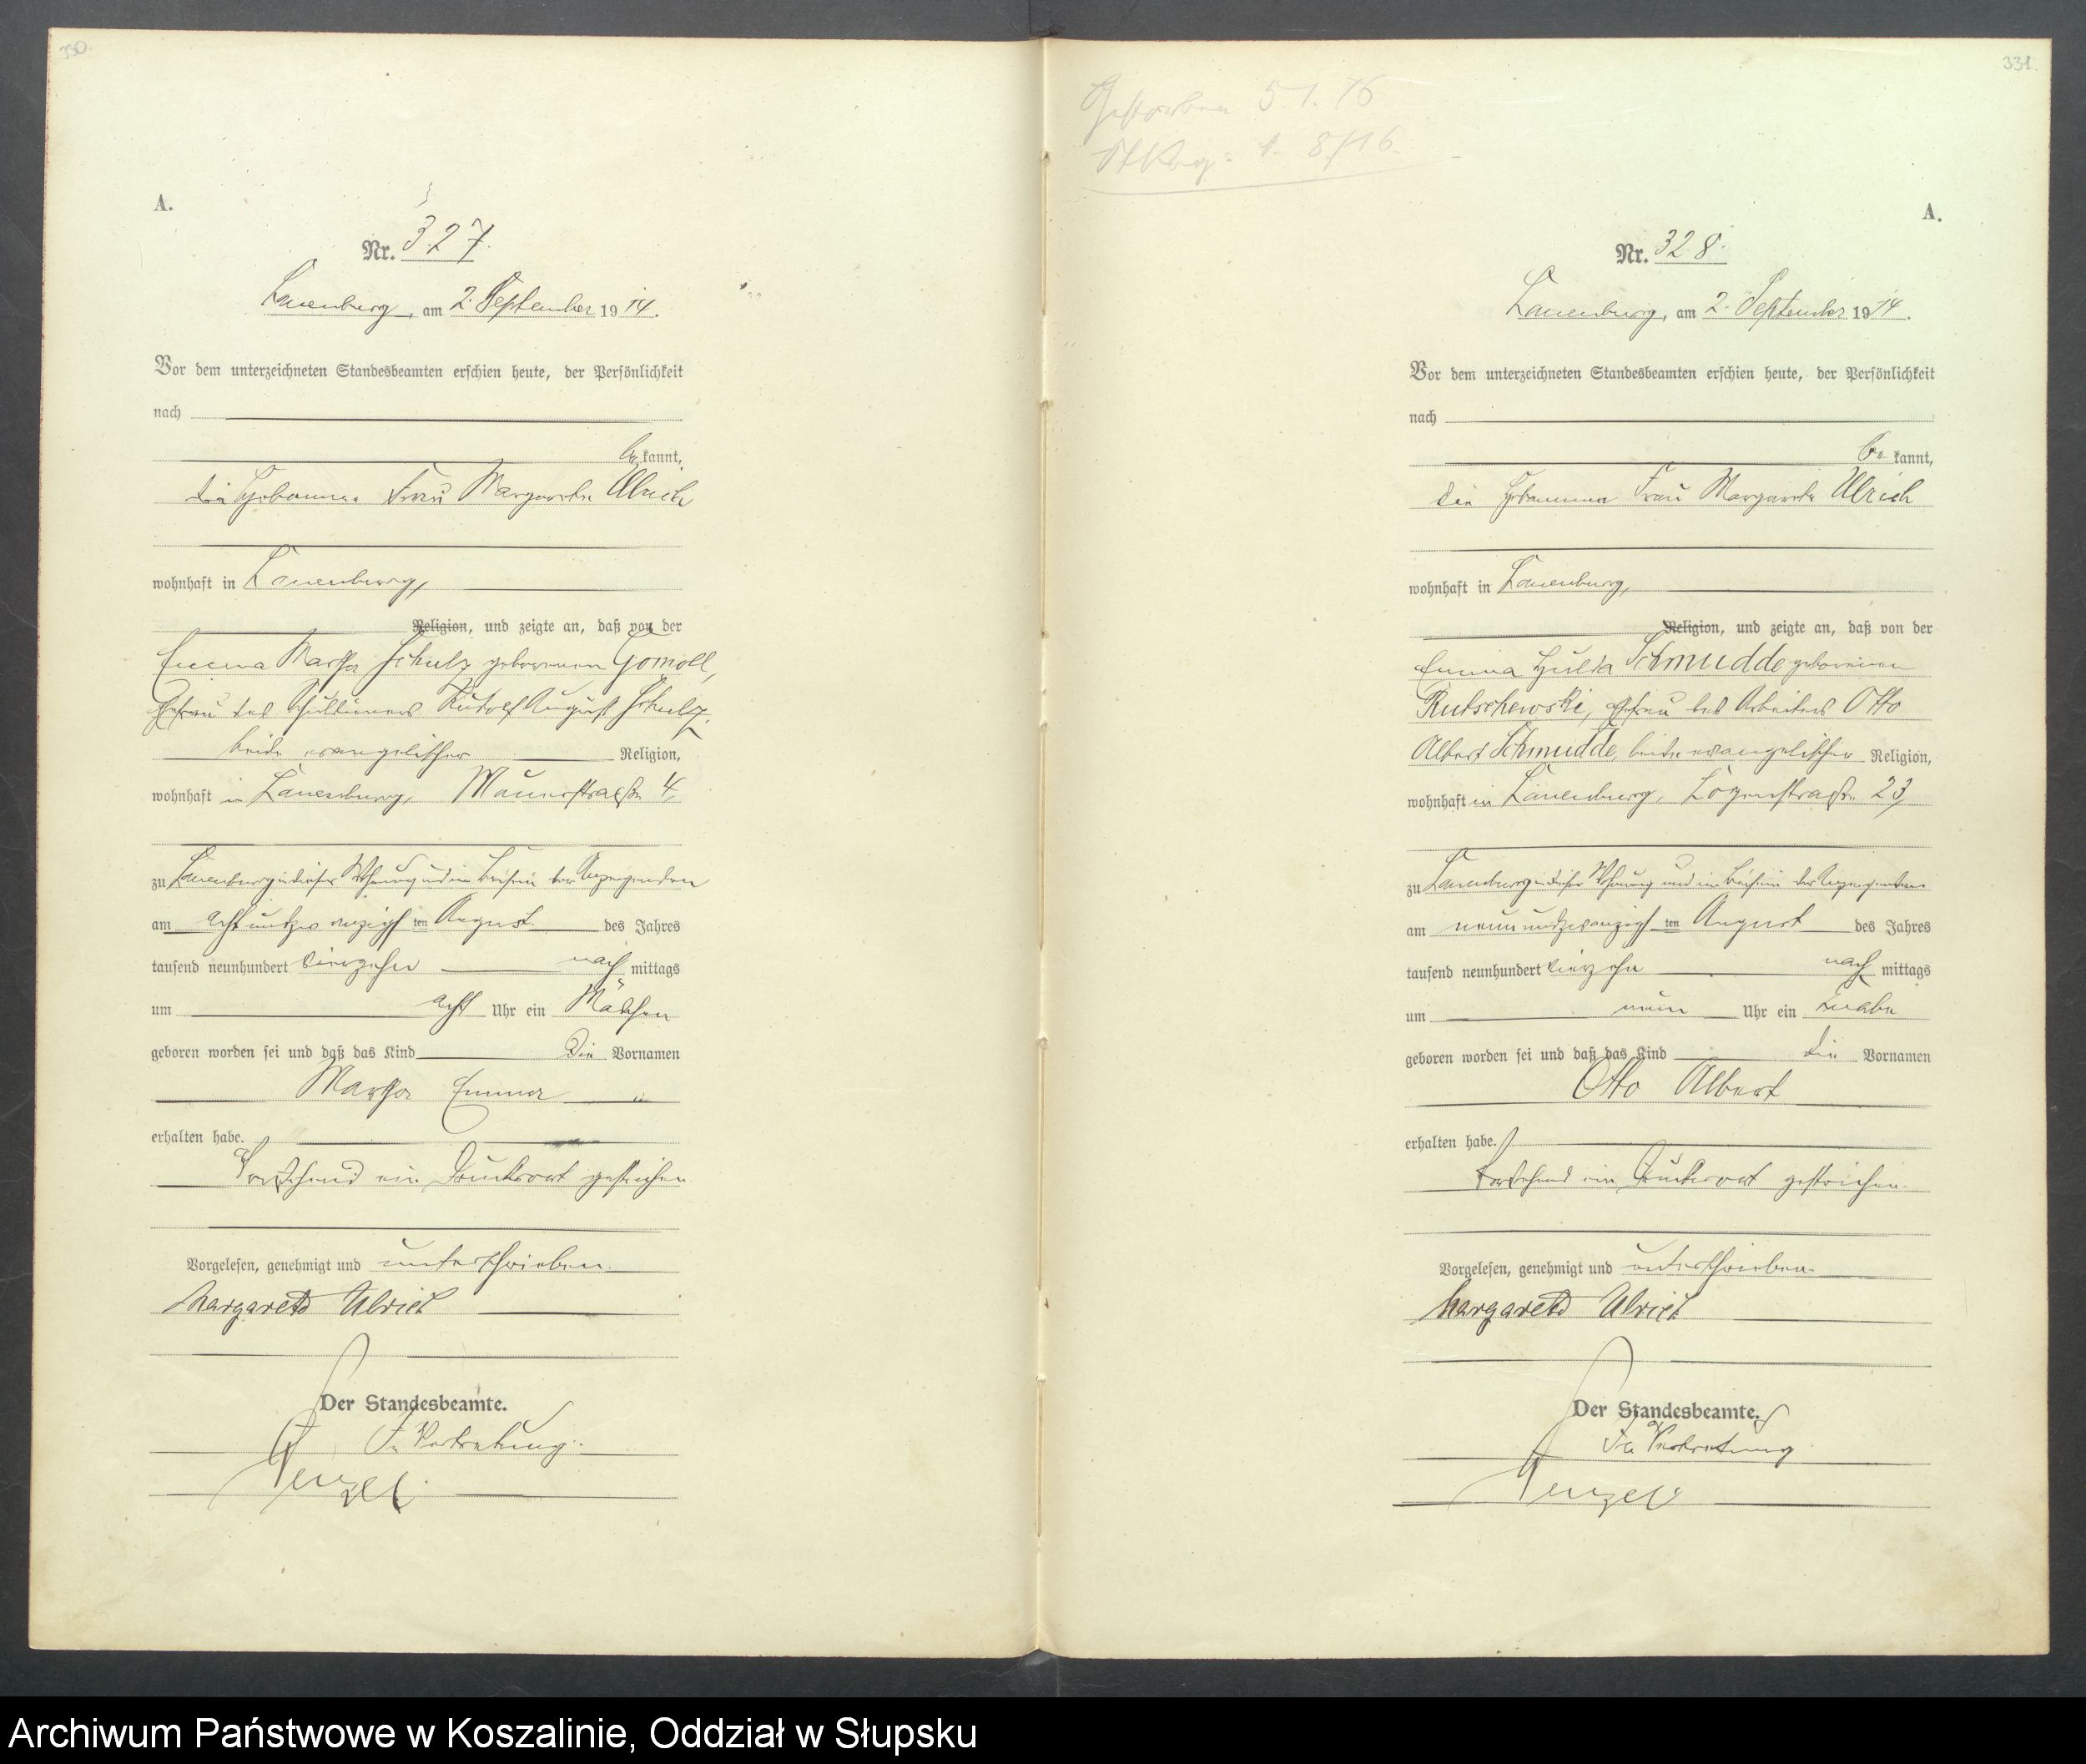 330.
A.
Nr. 327.
Lauenburg, am 2. September 1914.
Vor dem unterzeichneten Standesbeamten erschien heute, der Persönlichkeit
nach
be kannt,
die Hebamme Frau Margarete Ulrich
wohnhaft in Lauenburg,
Religion, und zeigte an, daß von der
Emma Martha Schulz geborenen Gomoll,
Ehefrau des Schuldieners Rudolf August Schulz,
beide evangelischer Religion,
wohnhaft in Lauenburg, Mauerstraße 4,
zu Lauenburg in dieser Wohnung und im Beisein der Anzeigenden
am achtundzwanzigsten August des Jahres
tausend neunhundert vierzehn nachmittags
um acht Uhr ein Mädchen
geboren worden sei und daß das Kind die Vornamen
Martha Emma
erhalten habe.
Vorstehend ein Druckwort gestrichen.
Vorgelesen, genehmigt und unterschrieben.
Margarete Ulrich
Der Standesbeamte.
In Vertretung.
331.
Gestorben 5.1.16
A.
Nr. 328.
Lauenburg, am 2. September 1914.
Vor dem unterzeichneten Standesbeamten erschien heute, der Persönlichkeit
nach
be kannt,
die Hebamme Frau Margarete Ulrich
wohnhaft in Lauenburg,
Religion, und zeigte an, daß von der
Emma Hulda Schmudde geborenen
Rutschewski, Ehefrau des Arbeiters Otto
Albert Schmudde, beide evangelischer Religion,
wohnhaft in Lauenburg, Logenstraße 23,
zu Lauenburg in dieser Wohnung und im Beisein der Anzeigenden
am neunundzwanzigsten August des Jahres
tausend neunhundert vierzehn nachmittags
um neun Uhr ein Knabe
geboren worden sei und daß das Kind die Vornamen
Otto Albert
erhalten habe.
Vorstehend ein Druckwort gestrichen.
Vorgelesen, genehmigt und unterschrieben.
Margarete Ulrich
Der Standesbeamte.
In Vertretung
Archiwum Państwowe w Koszalinie, Oddział w Słupsku